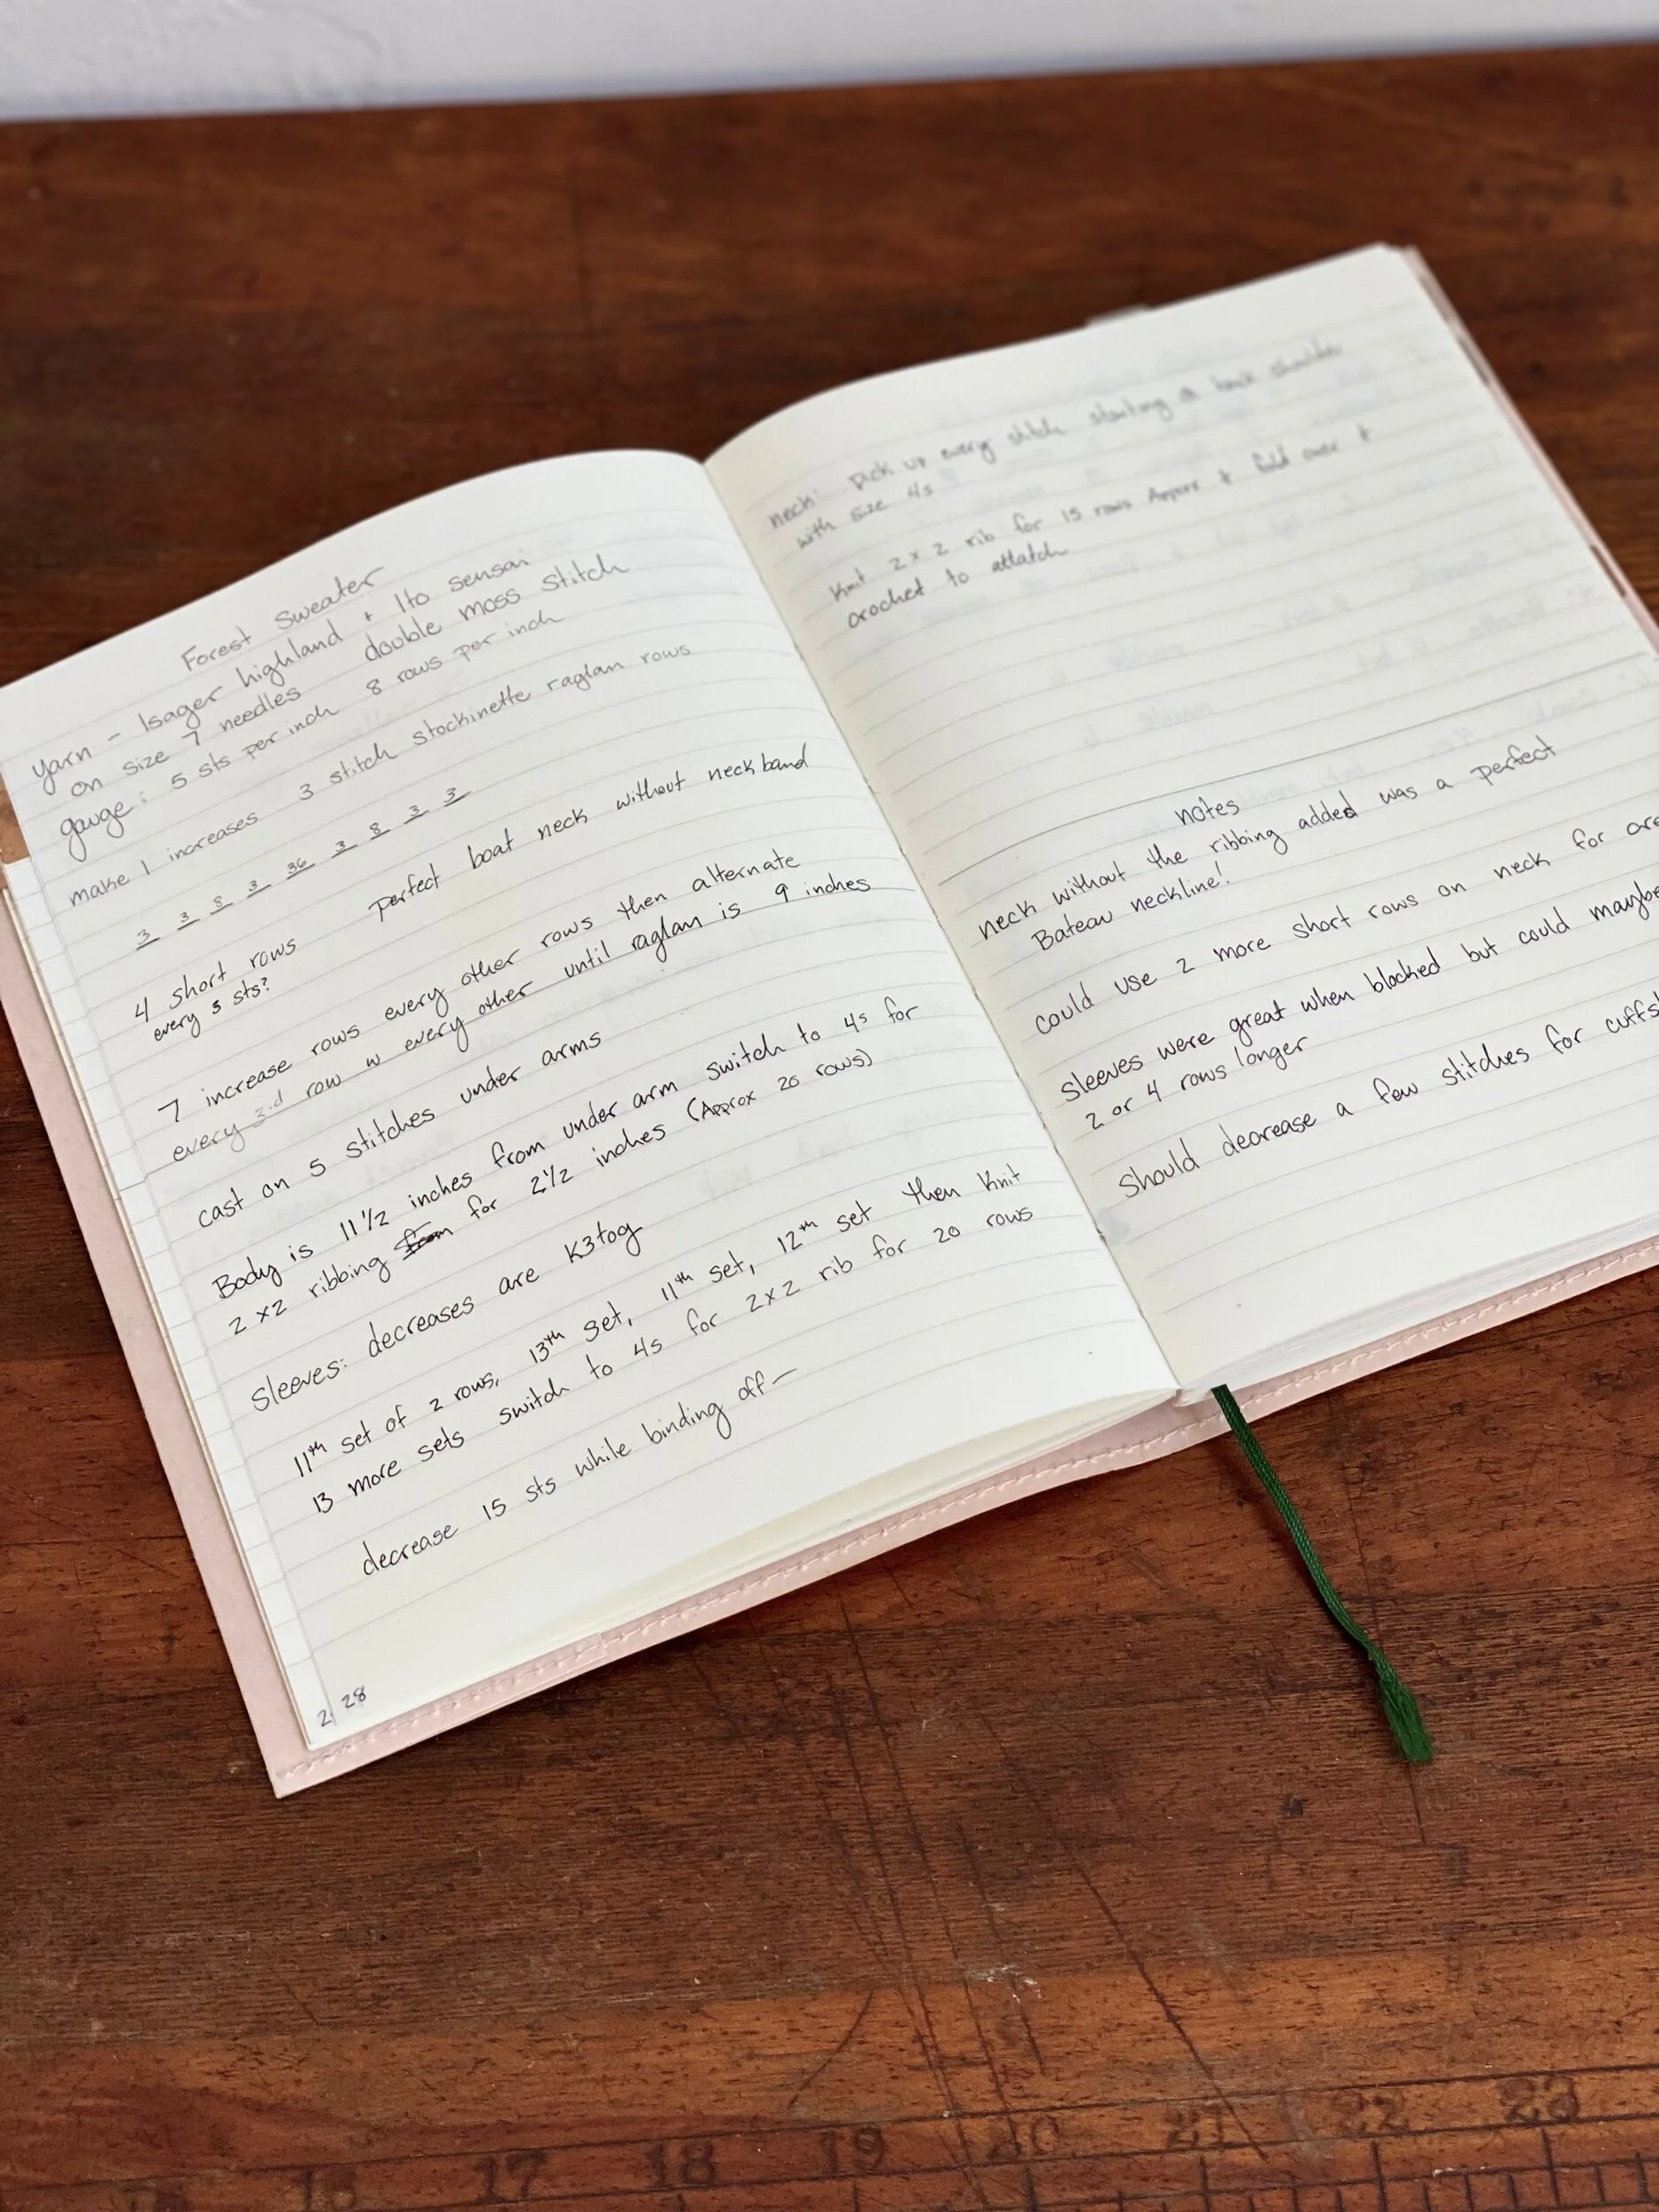 Forest Sweater
yarn - Isager highland + Ito sensai
on size 7 needles double moss stitch
gauge: 5 sts per inch 8 rows per inch
make 1 increases 3 stitch stockinette raglan rows
3 3 8 3 36 3 8 3 3
4 short rows perfect boat neck without neckband
every 3 sts?
7 increase rows every other rows then alternate
every 3rd row w every other until raglan is 9 inches
cast on 5 stitches under arms
Body is 11 1/2 inches from under arm switch to 4s for
2x2 ribbing from for 2 1/2 inches (Approx 20 rows)
Sleeves: decreases are K3tog
11th set of 2 rows, 13th set, 11th set, 12th set then knit
13 more sets switch to 4s for 2x2 rib for 20 rows
decrease 15 sts while binding off -
2 28
neck: pick up every stitch starting @ back shoulder
with size 4s
Knit 2x2 rib for 15 rows Approx + fold over +
crochet to attatch
notes
neck without the ribbing added was a perfect
Bateau neckline!
could use 2 more short rows on neck for
Sleeves were great when blocked but could maybe
2 or 4 rows longer
Should decrease a few stitches for cuffs
17 18 19 20 21 22 23